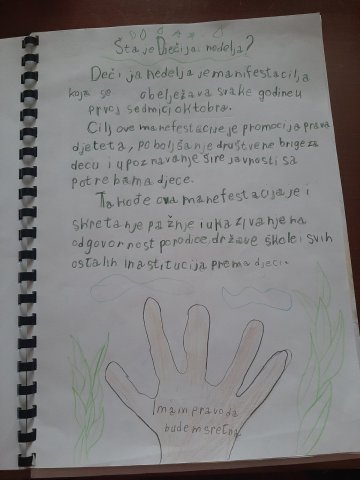 Šta je Dječija nedelja?
Dečija nedelja je manifestacilja
koja se obelježava svake godine u
prvoj sedmici oktobra.
Cilj ove manefestacije je promocija prava
djeteta, poboljšanje društvene brige za
decu i upoznavanje šire javnosti sa
potrebama djece.
Takođe ova manefestacija je i
skretanje pažnje i ukazivanje na
odgovornost porodice, države škole i svih
ostalih inastitucija prema djeci.
Imam pravo da
budem srećna